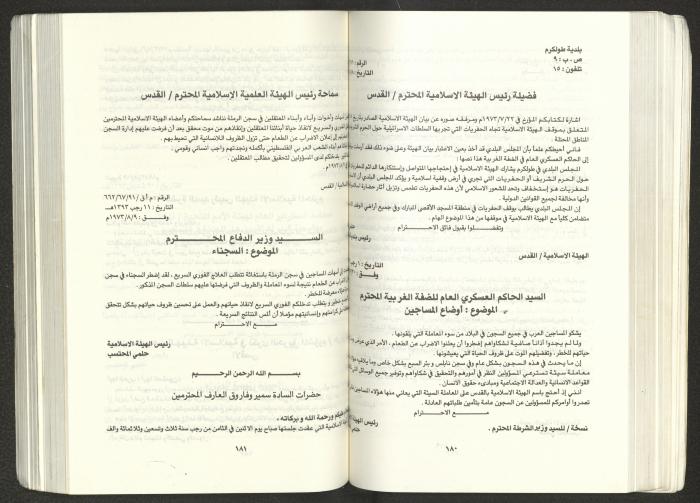 بلدية طولكرم
ص . ب : ٩
تلفون : ١٥
فضيلة رئيس الهيئة الاسلامية المحترم / القدس
اشارة لكتابكم المؤرخ في ١٩٧٣/٧/٢٢ ومرفقه صوره عن بيان الهيئة الاسلامية الصادر
المتعلق بموقف الهيئة الاسلامية تجاه الحفريات التي تجريها السلطات الاسرائيلية حول الحرم
المناطق المحتلة .
فاني أحيطكم علماً بأن المجلس البلدي قد أخذ بعين الاعتبار بيان الهيئة وعلى ضوء ذلك فقد
الى الحاكم العسكري العام في الضفة الغربية هذا نصها :
المجلس البلدي في طولكرم يشارك الهيئة الاسلامية في إحتجاجها المتواصل وإستنكارها الدائم
حول الحرم الشريف أو الحفريات التي تجري في أرض وقفية اسلامية و يؤكد المجلس البلدي أن
الحفريات هو إستخفاف وتحد للشعور الاسلامي لأن هذه الحفريات تطمس وتزيل آثار حضارة
وأنها مخالفة لجميع القوانين الدولية .
إن المجلس البلدي يطالب بوقف الحفريات في منطقة المسجد الأقصى المبارك وفي جميع أراضي
متضامن كلياً مع الهيئة الاسلامية في موقفها من هذا الموضوع الهام .
وتفضلوا بقبول فائق الاحترام
الهيئة الاسلامية / القدس
السيد الحاكم العسكري العام للضفة الغربية المحترم
الموضوع : أوضاع المساجين
يشكو المساجين العرب في جميع السجون في البلاد من سوء المعاملة التي يلقونها .
ولما لم يجدوا آذاناً صاغية لشكاواهم إضطروا أن يعلنوا الاضراب عن الطعام ، الأمر الذي
حياتهم للخطر ، وتفضيلهم الموت على ظروف الحياة التي يعيشونها .
إن ما يحدث في هذه السجون بشكل عام وفي سجن نابلس و بئر السبع بشكل خاص وما
معاملة سيئة تستدعي المسؤولين النظر في أمورهم والتحقيق في شكاواهم وتوفير جميع الوسائل
القواعد الانسانية والعدالة الاجتماعية ومبادىء حقوق الانسان .
انني إذ أحتج باسم الهيئة الاسلامية بالقدس على المعاملة السيئة التي يعاني منها هؤلاء
تصدروا أوامركم للمسؤولين عن السجون عامة بتأمين طلباتهم العادلة .
مع الاحترام
نسخة / للسيد وزير الشرطة المحترم .
١٨٠
سماحة رئيس الهيئة العلمية الاسلامية المحترم / القدس
وأخوات وآباء وأبناء المعتقلين في سجن الرملة نناشد سماحتكم وأعضاء الهيئة الاسلامية المحترمين
والسريع لانقاذ حياة أبنائنا المعتقلين وإنقاذهم من موت محقق بعد أن فرضت عليهم إدارة السجن
إلى إعلان الاضراب عن الطعام حتى تزول الظروف اللاانسانية التي تحيط بهم .
أبناء الشعب العربي الفلسطيني بأكمله ونجدتهم واجب انساني وقومي .
لدى المسؤولين لتحقيق مطالب المعتقلين .
الرقم : م أ ق / ٦٦٢/٦٧/٩١
التاريخ : ١١ رجب ١٣٩٣هـ
وفـــق : ١٩٧٣/٨/٩م
السيد وزير الدفاع المحترم
الموضوع : السجناء
أمهات المساجين في سجن الرملة باستغاثة تتطلب العلاج الفوري السريع ، لقد إضطر السجناء في سجن
عن الطعام نتيجة لسوء المعاملة والظروف التي فرضتها عليهم سلطات السجن المذكور .
معرضة للخطر .
خطير و يتطلب تدخلكم السريع لانقاذ حياتهم والعمل على تحسين ظروف حياتهم بشكل تتحقق
كرامتهم وإنسانيتهم مؤملاً أن ألمس النتائج السريعة .
مع الاحترام
رئيس الهيئة الاسلامية
حلمي المحتسب
بسم الله الرحمن الرحيم
حضرات السادة سمير وفاروق العارف المحترمين
ورحمة الله و بركاته .
الاسلامية التي عقدت جلستها صباح يوم الاثنين في الثامن من رجب سنة ثلاث وتسعين وثلاثمائة والف
١٨١